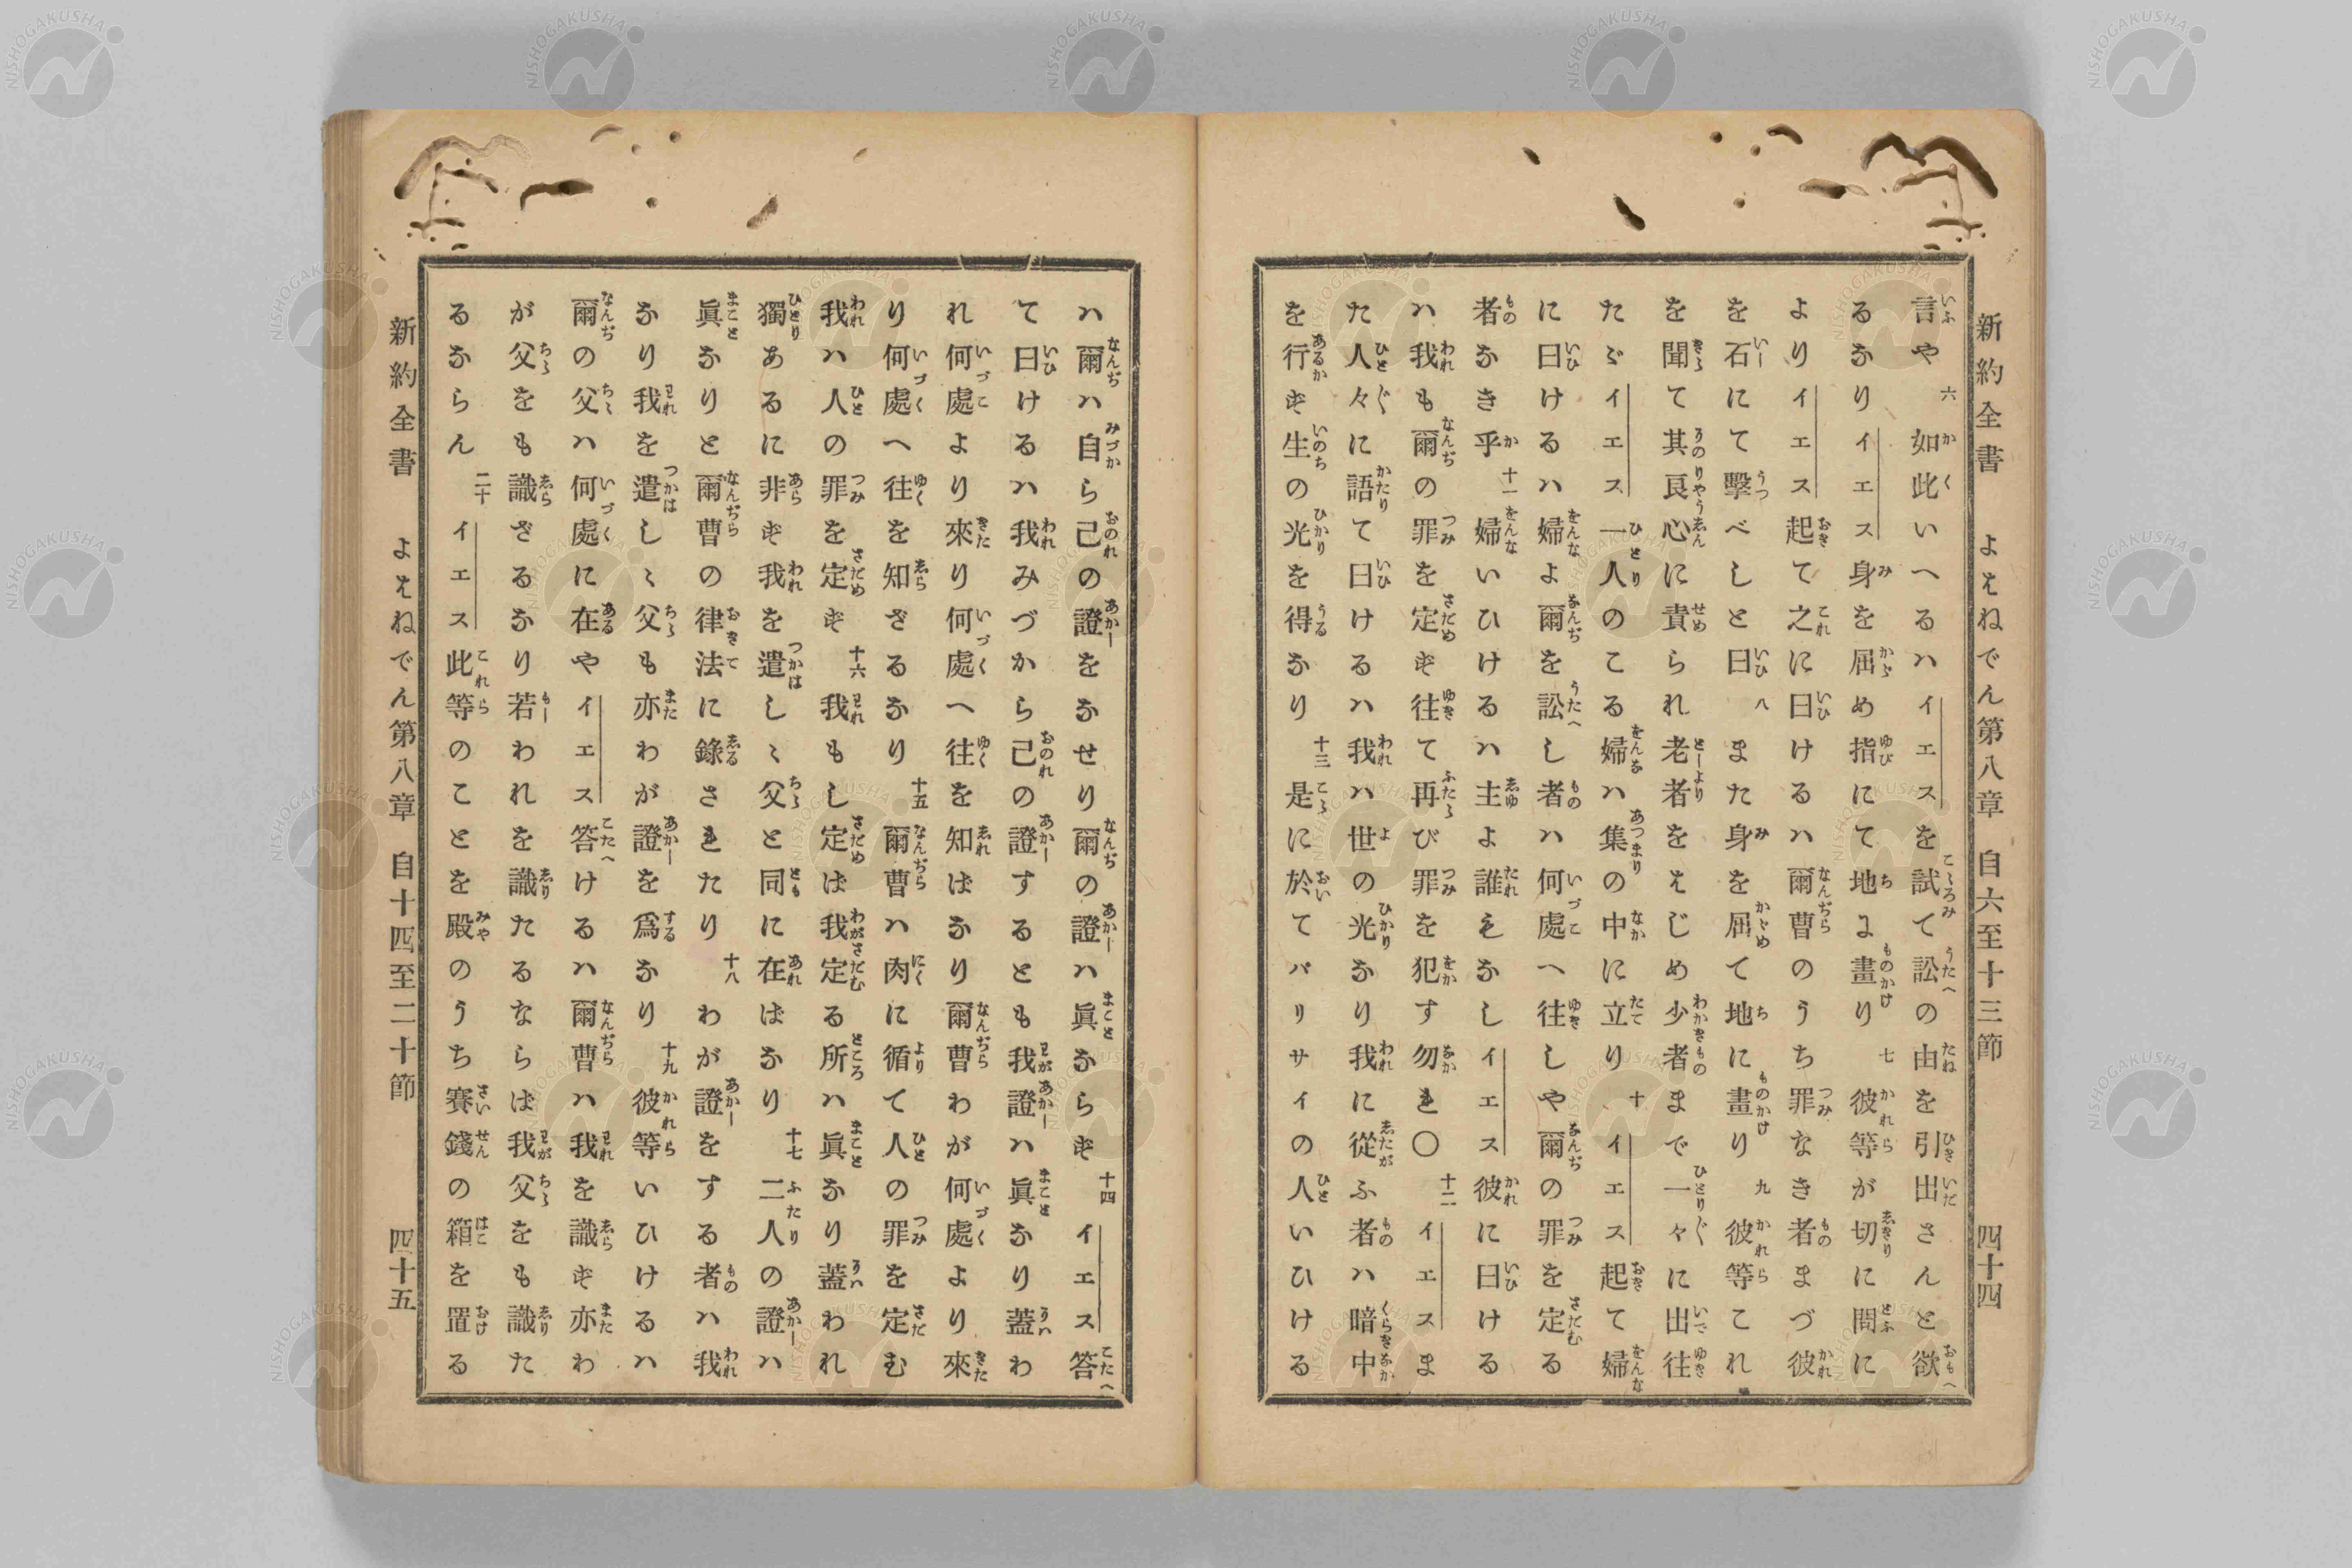 新約全書 よはねでん第八章 自六至十三節 四十四
言や 六 如此いへるハイエスを試て訟の由を引出さんと欲
るなりイエス身を屈め指にて地に畫り 七 彼等が切に問に
よりイエス起て之に曰けるハ爾曹のうち罪なき者まづ彼
を石にて擊べしと曰 八 また身を屈て地に畫り 九 彼等これ
を聞て其良心に責られ老者をはじめ少者まで一々に出往
たゞイエス一人のこる婦ハ集の中に立り 十 イエス起て婦
に曰けるハ婦よ爾を訟し者ハ何處へ往しや爾の罪を定る
者なき乎 十一 婦いひけるハ主よ誰もなしイエス彼に曰ける
ハ我も爾の罪を定ず往て再び罪を犯す勿れ〇 十二 イエスま
た人々に語て曰けるハ我ハ世の光なり我に從ふ者ハ暗中
を行ず生の光を得なり 十三 是に於てパリサイの人いひける
ハ爾ハ自ら己の證をなせり爾の證ハ眞ならず 十四 イエス答
て曰けるハ我みづから己の證するとも我證ハ眞なり蓋わ
れ何處より來り何處へ往を知ばなり爾曹わが何處より來
り何處へ往を知ざるなり 十五 爾曹ハ肉に循て人の罪を定む
我ハ人の罪を定ず 十六 我もし定ば我定る所ハ眞なり蓋われ
獨あるに非ず我を遣しゝ父と同に在ばなり 十七 二人の證ハ
眞なりと爾曹の律法に錄されたり 十八 わが證をする者ハ我
なり我を遣しゝ父も亦わが證を爲なり 十九 彼等いひけるハ
爾の父ハ何處に在やイエス答けるハ爾曹ハ我を識ず亦わ
が父をも識ざるなり若われを識たるならば我父をも識た
るならん 二十 イエス此等のことを殿のうち賽錢の箱を置る
新約全書 よはねでん第八章 自十四至二十節 四十五
NISHOGAKUSHA